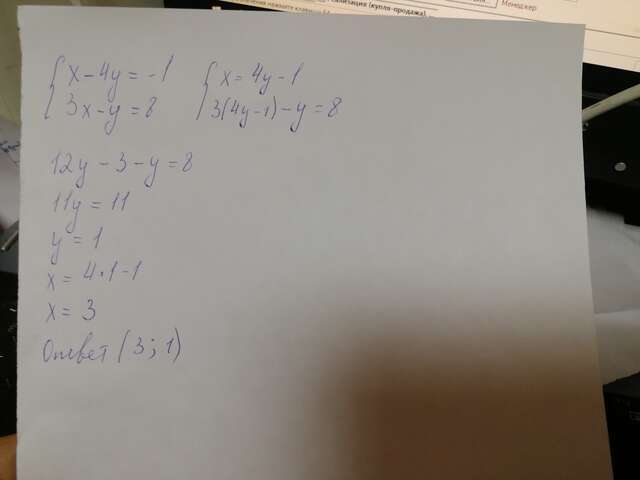 ализация (купля-продажа).
Менеджер
x - 4y = -1
3x - y = 8
x = 4y - 1
3(4y - 1) - y = 8
12y - 3 - y = 8
11y = 11
y = 1
x = 4·1 - 1
x = 3
Ответ (3; 1)